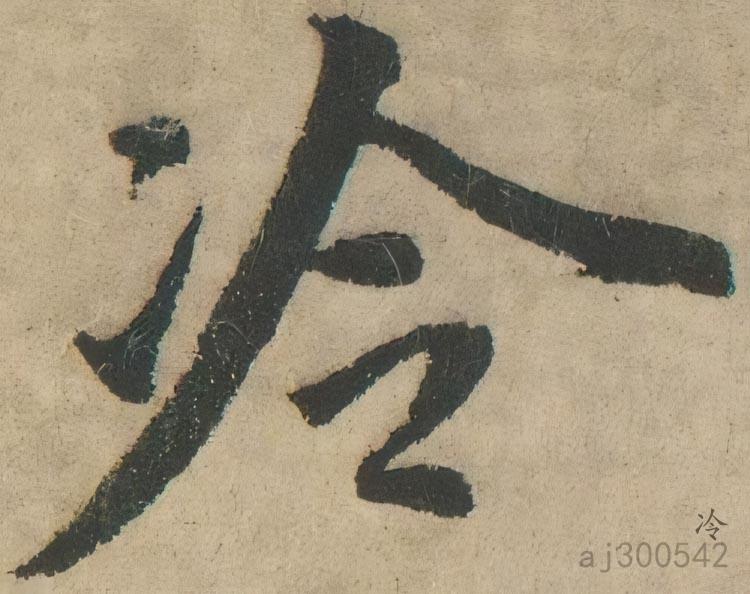 冷
冷
aj300542